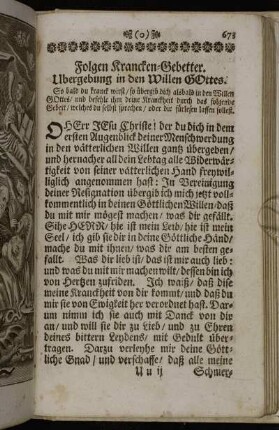 (o) 675
Folgen Krancken-Gebetter.
Ubergebung in den Willen GOttes.
So bald du kranck wirst / so übergib dich alsbald in den Willen
GOttes / und befehle ihm deine Kranckheit durch das folgende
Gebett / welches du selbst sprechen / oder dir fürlesen lassen sollest.
OHErr JEsu Christe! der du dich in dem
ersten Augenblick deiner Menschwerdung
in den vätterlichen Willen gantz übergeben /
und hernacher all dein Lebtag alle Widerwär-
tigkeit von seiner vätterlichen Hand freywil-
liglich angenommen hast: In Vereinigung
deiner Resignation übergib ich mich jetzt voll-
kommentlich in deinen Göttlichen Willen / daß
du mit mir mögest machen / was dir gefällt.
Sihe HERR / hie ist mein Leid / hie ist mein
Seel / ich gib sie dir in deine Göttliche Händ /
mache du mit ihnen / was dir am besten ge-
fallt. Was dir lieb ist / das ist mir auch lieb:
und was du mit mir machen wilt / dessen bin ich
von Hertzen zufriden. Ich waiß / daß dise
Kranckheit von dir kommt / und daß du
mir sie von Ewigkeit her verordnet hast. Dar-
um nimm ich sie auch mit Danck von dir
an / und will sie dir zu Lieb / und zu Ehren
deines bittern Leydens / mit Gedult über-
tragen. Darzu verleyhe mir deine Gött-
liche Gnad / und verschaffe / daß alle meine
U u ij Schmer-